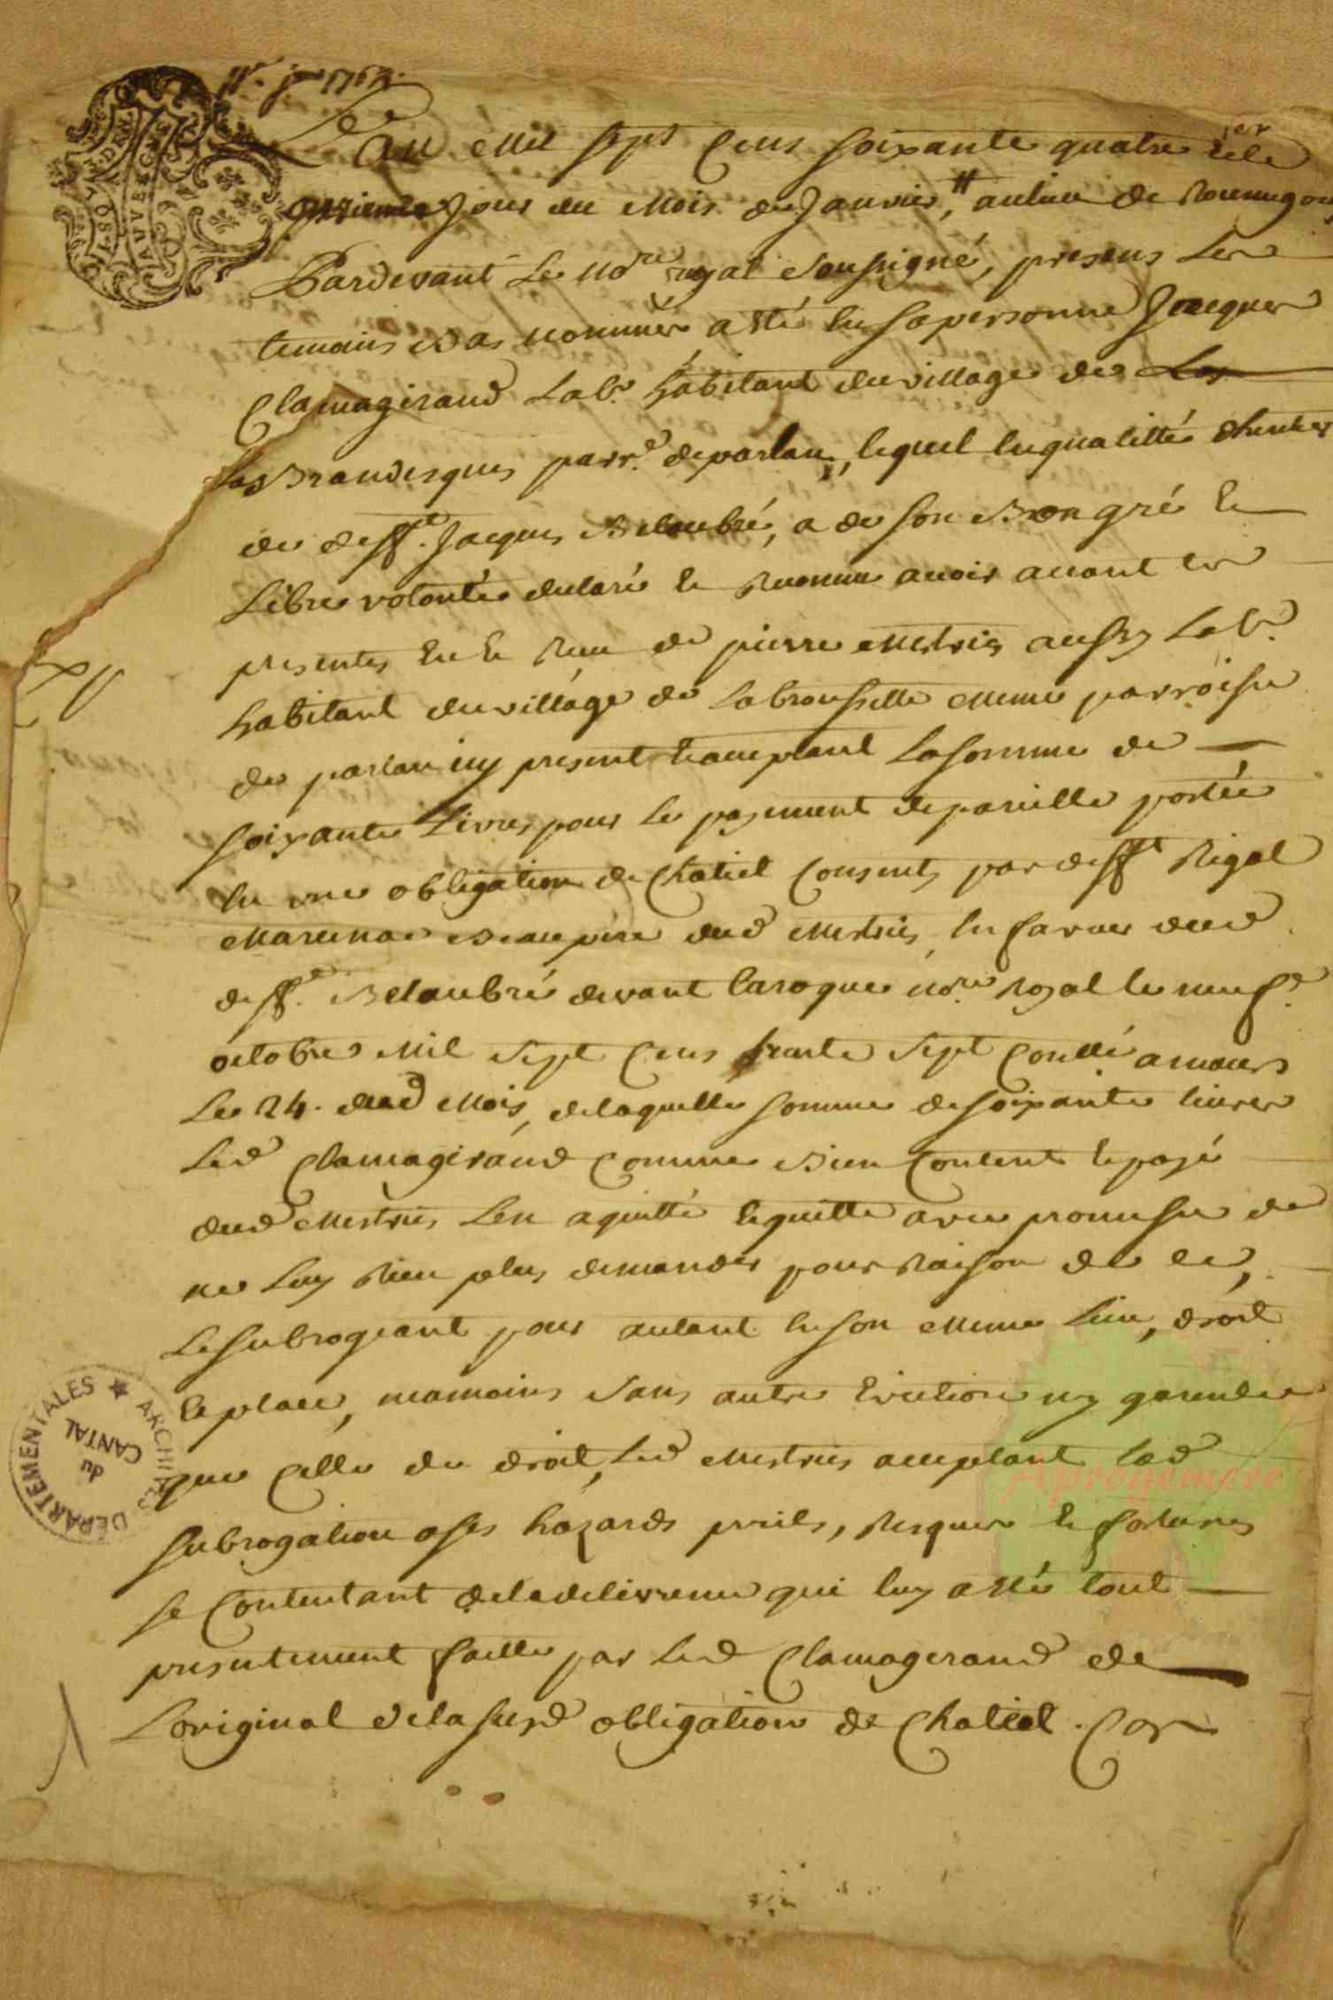 11e. jer 1764.
L'an mil sept cens soixante quatre et le
onzieme jour du mois de janvier, au lieu de Roumegoux
Pardevant le nore royal soussigné, presens les
temoins bas nommés a été en sa personne Jacques
Clamagirand labr. habitant du village de
las Brandesques parre. de parlan, lequel en qualitté
de defft. Jacques Belaubré, a de son bon gré et
libre volonté declaré et reconnu avoir avant ces
presentes eu et receu de pierre Mestries aussy labr.
habitant du village de labroussette meme parroisse
de parlan icy present et acceptant la somme de
soixante livres pour le payement de pareille portée
en une obligation de Chatiel consentie par defft Rigal
Marcenac beaupère dud Mestries en faveur dud
defft. Belaubré devant laroque nore. royal le neufe.
octobre mil sept cens trente sept conllé a maurs
le 24. dud mois, de laquelle somme de soixante livres
led Clamagirand comme bien content et payé
dud Mestries l'en a quitté et quitte avec promesse de
ne luy rien plus demander pour raison de ce,
le subrogeant pour autant en son meme lieu, droit
et place, neamoins sans autre eviction ny garentie
que celle de droit, led Mestries acceptant lad
subrogation a ses hazards perils, risques et fortunes
se contentant de la delivrence qui luy a été tout
presentement faitte par led Clamagerand de
L'original de la susd obligation de Chatiel. Car
ARCHIVES DEPARTEMENTALES
du
CANTAL
Aprogemere